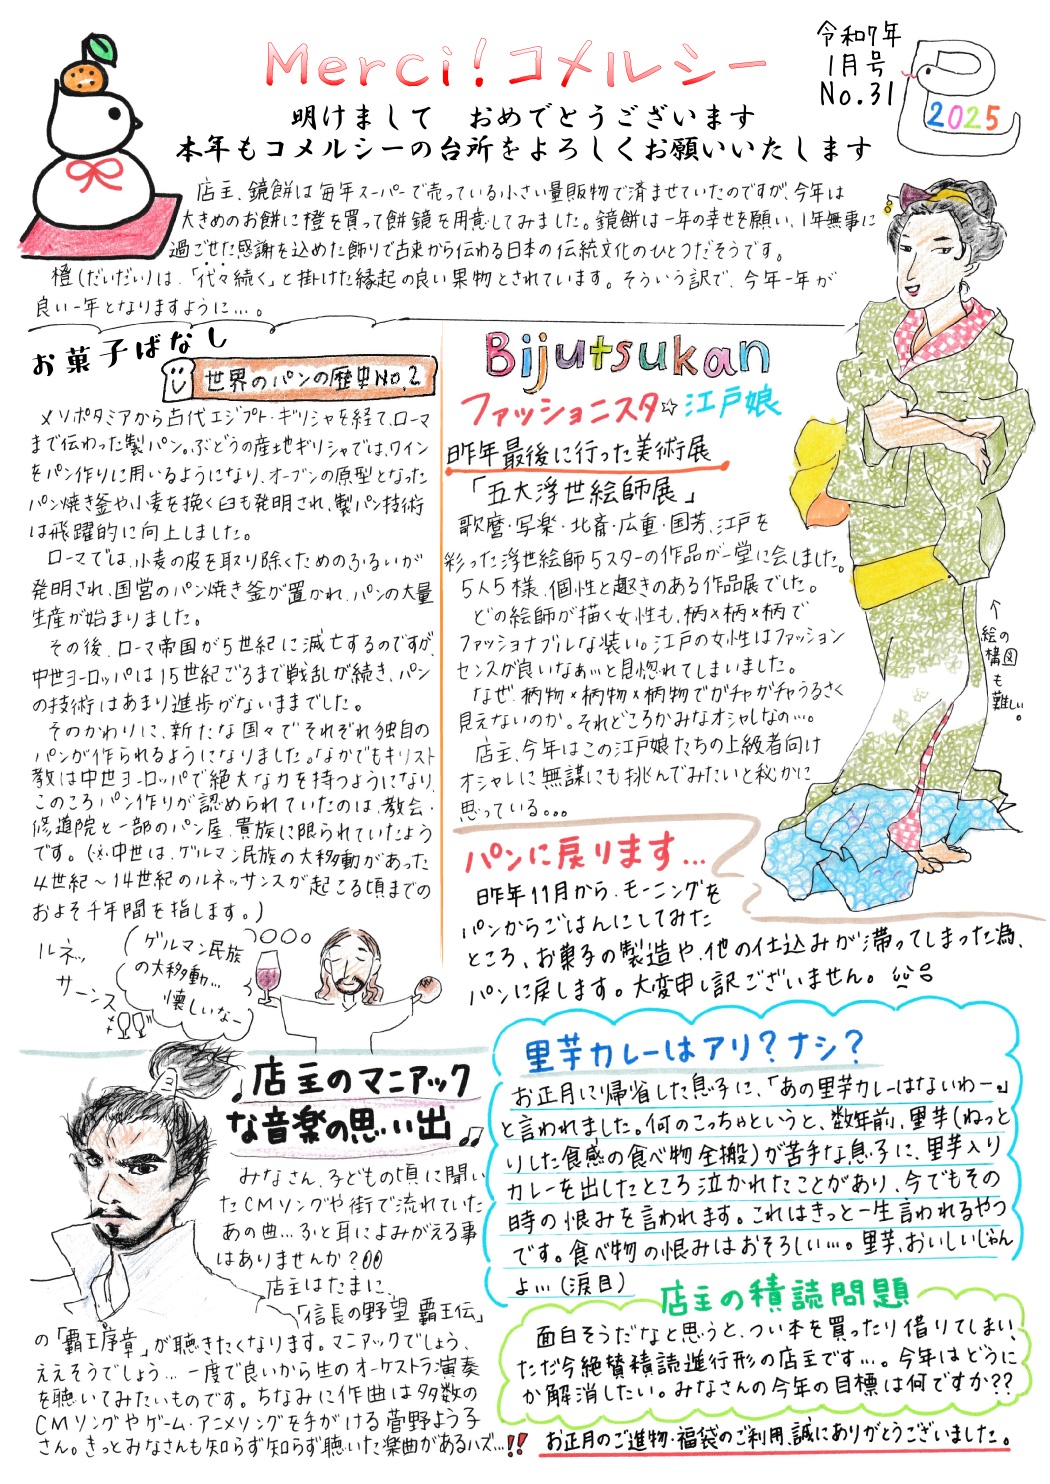 Merci!コメルシー
令和7年
1月号
No.31
2025
明けまして おめでとうございます
本年もコメルシーの台所をよろしくお願いいたします
店主、鏡餅は毎年スーパーで売っている小さい量販物で済ませていたのですが、今年は
大きめのお餅に橙を買って餅鏡を用意してみました。鏡餅は一年の幸せを願い、1年無事に
過ごせた感謝を込めた飾りで古来から伝わる日本の伝統文化のひとつだそうです。
橙(だいだい)は、「代々続く」と掛けた縁起の良い果物とされています。そういう訳で、今年一年が
良い一年となりますように…。
お菓子ばなし
世界のパンの歴史No.2
メソポタミアから古代エジプト・ギリシャを経て、ローマ
まで伝わった製パン。ぶどうの産地ギリシャでは、ワイン
をパン作りに用いるようになり、オーブンの原型となった
パン焼き釜や小麦を挽く臼も発明され、製パン技術
は飛躍的に向上しました。
ローマでは、小麦の皮を取り除くためのふるいが
発明され、国営のパン焼き釜が置かれ、パンの大量
生産が始まりました。
その後、ローマ帝国が5世紀に滅亡するのですが、
中世ヨーロッパは15世紀ごろまで戦乱が続き、パン
の技術はあまり進歩がないままでした。
そのかわりに、新たな国々でそれぞれ独自の
パンが作られるようになりました。なかでもキリスト
教は中世ヨーロッパで絶大な力を持つようになり、
このころパン作りが認められていたのは、教会・
修道院と一部のパン屋、貴族に限られていたよう
です。(※中世は、ゲルマン民族の大移動があった
4世紀〜14世紀のルネッサンスが起こる頃までの
およそ千年間を指します。)
ルネッ
サーンス
ゲルマン民族
の大移動…
懐しいなー
Bijutsukan
ファッショニスタ☆江戸娘
昨年最後に行った美術展
「五大浮世絵師展」
歌麿・写楽・北斎・広重・国芳、江戸を
彩った浮世絵師5スターの作品が一堂に会しました。
5人5様、個性と趣きのある作品展でした。
どの絵師が描く女性も、柄×柄×柄で
ファッショナブルな装い。江戸の女性はファッション
センスが良いなぁ…と見惚れてしまいました。
なぜ、柄物×柄物×柄物でガチャガチャうるさく
見えないのか。それどころかみなオシャレなの…。
店主、今年はこの江戸娘たちの上級者向け
オシャレに無謀にも挑んでみたいと秘かに
思っている。。。
↑絵の構図も難しい。
パンに戻ります…
昨年11月から、モーニングを
パンからごはんにしてみた
ところ、お菓子の製造や、他の仕込みが滞ってしまった為、
パンに戻します。大変申し訳ございません。
♩店主のマニアック
な音楽の思い出♫
みなさん、子どもの頃に聞い
たCMソングや街で流れていた
あの曲…ふと耳によみがえる事
はありませんか?
店主はたまに、
「信長の野望 覇王伝」
の「覇王序章」が聴きたくなります。マニアックでしょう、
ええそうでしょう…一度で良いから生のオーケストラ演奏
を聴いてみたいものです。ちなみに作曲は多数の
CMソングやゲーム・アニメソングを手がける菅野よう子
さん。きっとみなさんも知らず知らず聴いた楽曲があるハズ…!!
里芋カレーはアリ?ナシ?
お正月に帰省した息子に、「あの里芋カレーはないわー。」
と言われました。何のこっちゃというと、数年前、里芋(ねっと
りした食感の食べ物全搬)が苦手な息子に、里芋入り
カレーを出したところ泣かれたことがあり、今でもその
時の恨みを言われます。これはきっと一生言われるやつ
です。食べ物の恨みはおそろしい…。里芋、おいしいじゃん
よ…(涙目)
店主の積読問題
面白そうだなと思うと、つい本を買ったり借りてしまい、
ただ今絶賛積読進行形の店主です…。今年はどうに
か解消したい。みなさんの今年の目標は何ですか??
お正月のご進物・福袋のご利用、誠にありがとうございました。